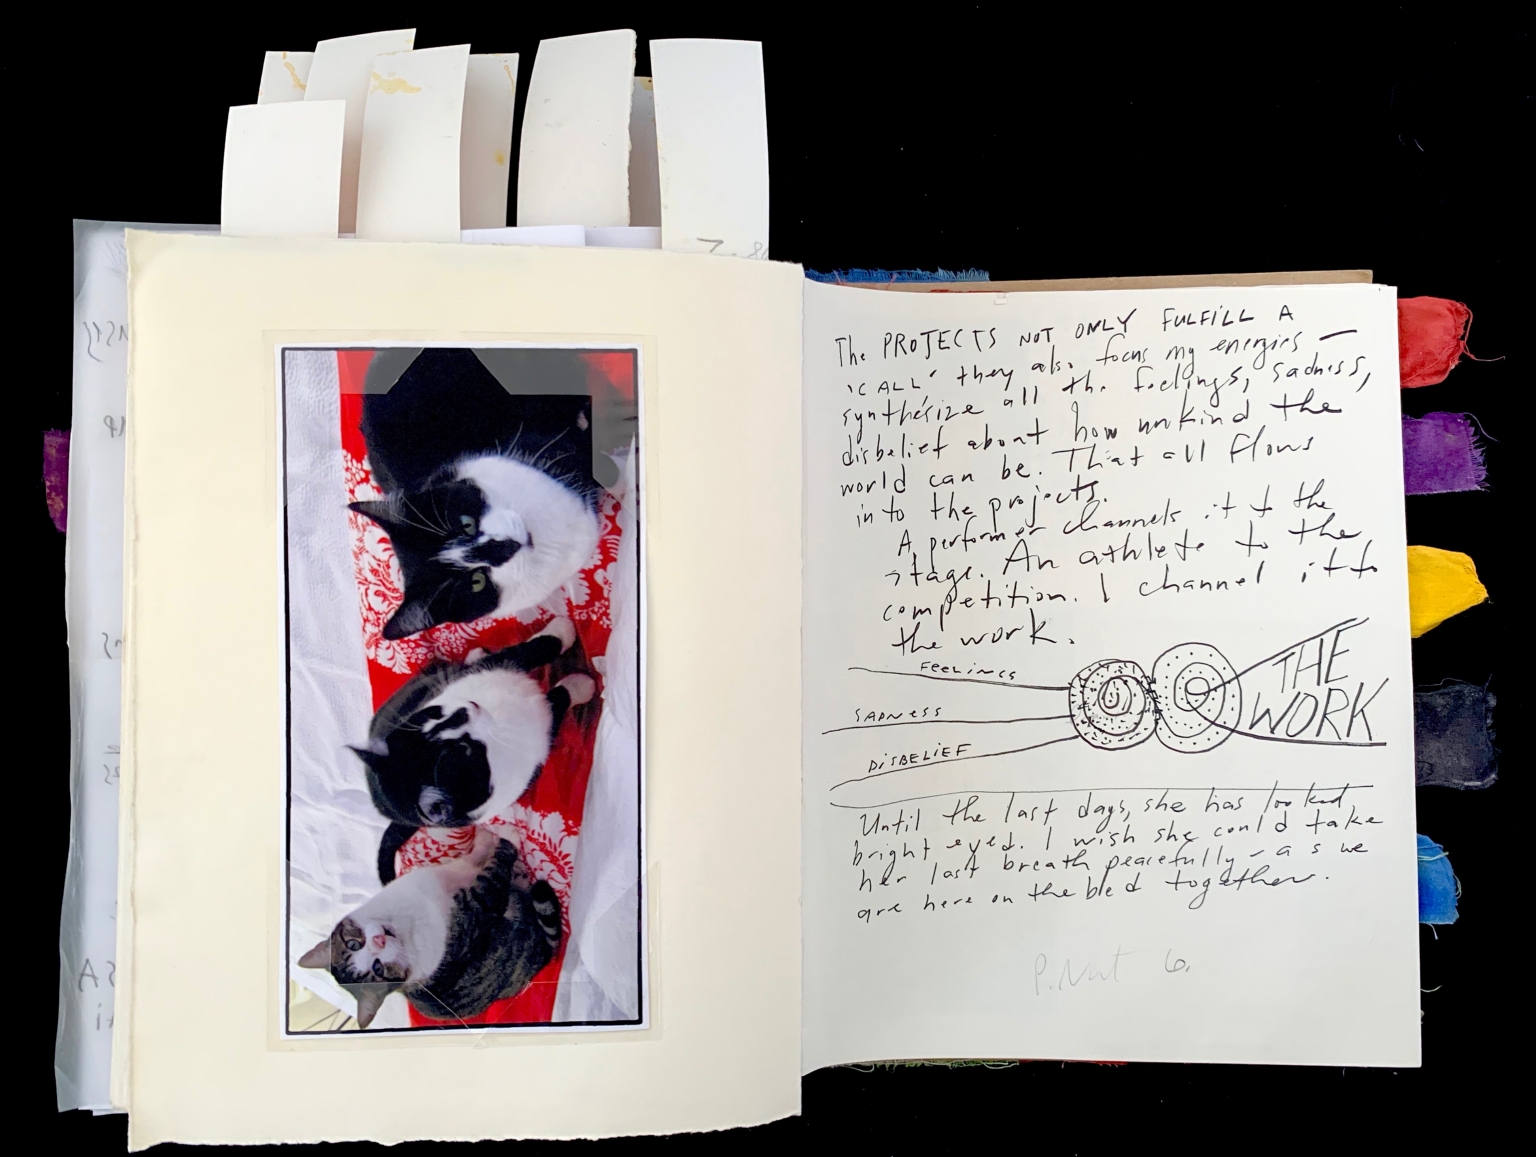 The PROJECTS NOT ONLY FULFILL A
"CALL" they also focus my energies –
synthesize all the feelings, sadness,
disbelief about how unkind the
world can be. That all flows
into the projects.
A performer channels it to the
stage. An athlete to the
competition. I channel it to
the work.
FEELINGS
SADNESS
DISBELIEF
THE
WORK
Until the last days, she has looked,
bright eyed. I wish she could take
her last breath peacefully – as we
are here on the bed together.
P. Nut 6.